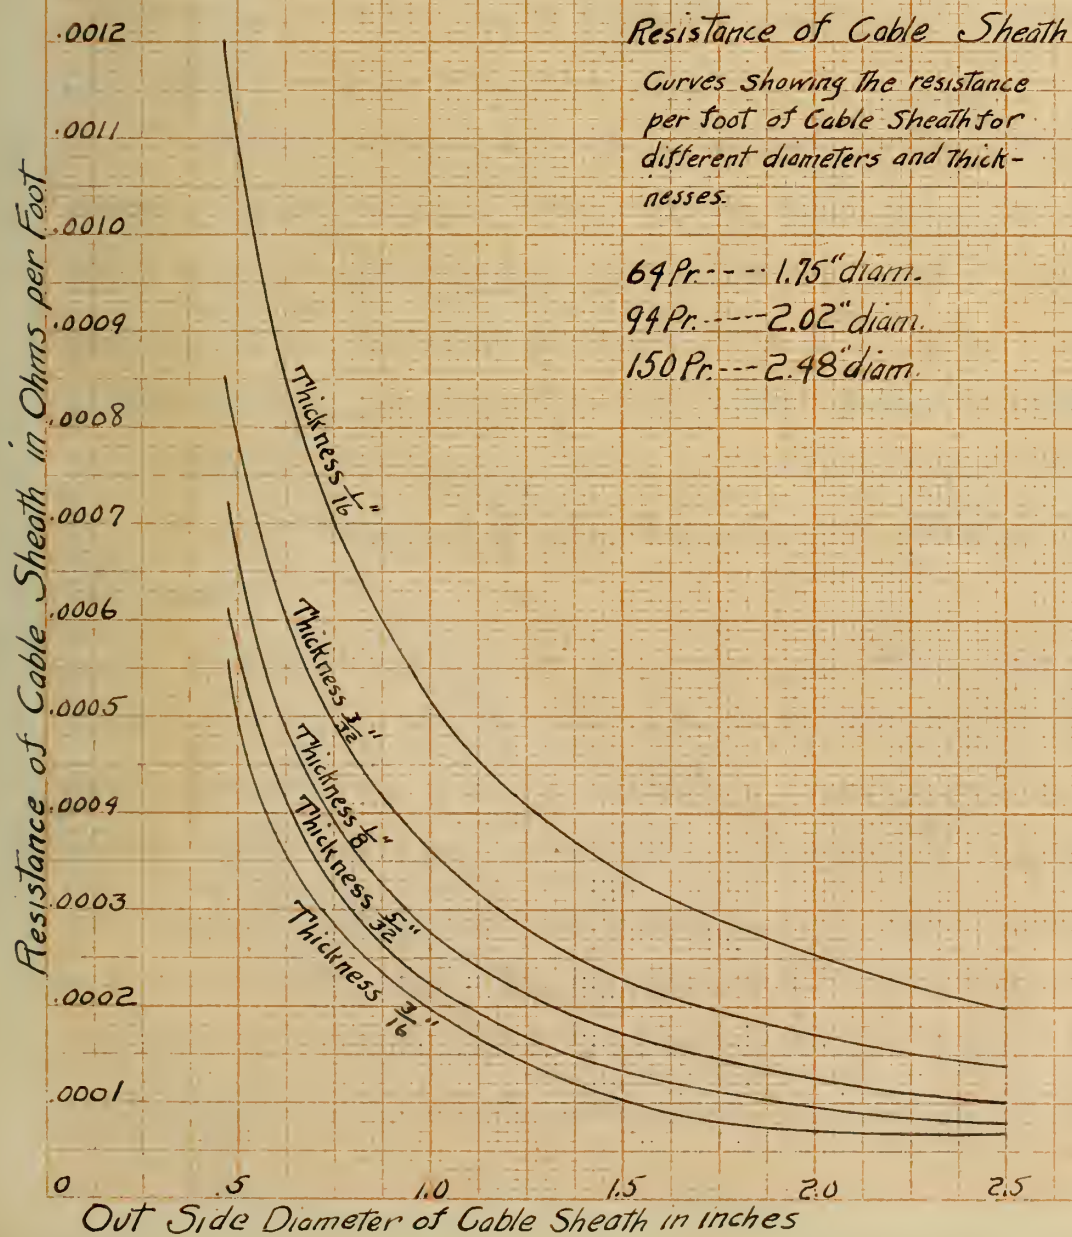 Resistance of Cable Sheath
Curves showing the resistance
per foot of Cable Sheath for
different diameters and Thick-
nesses.
64 Pr.---- 1.75" diam.
94 Pr.---- 2.02" diam.
150 Pr.--- 2.48" diam.
Resistance of Cable Sheath in Ohms per Foot
.0012
.0011
.0010
.0009
.0008
.0007
.0006
.0005
.0004
.0003
.0002
.0001
Thickness 1/16"
Thickness 3/32"
Thickness 1/8"
Thickness 5/32"
Thickness 3/16"
0 .5 1.0 1.5 2.0 2.5
Out Side Diameter of Cable Sheath in inches